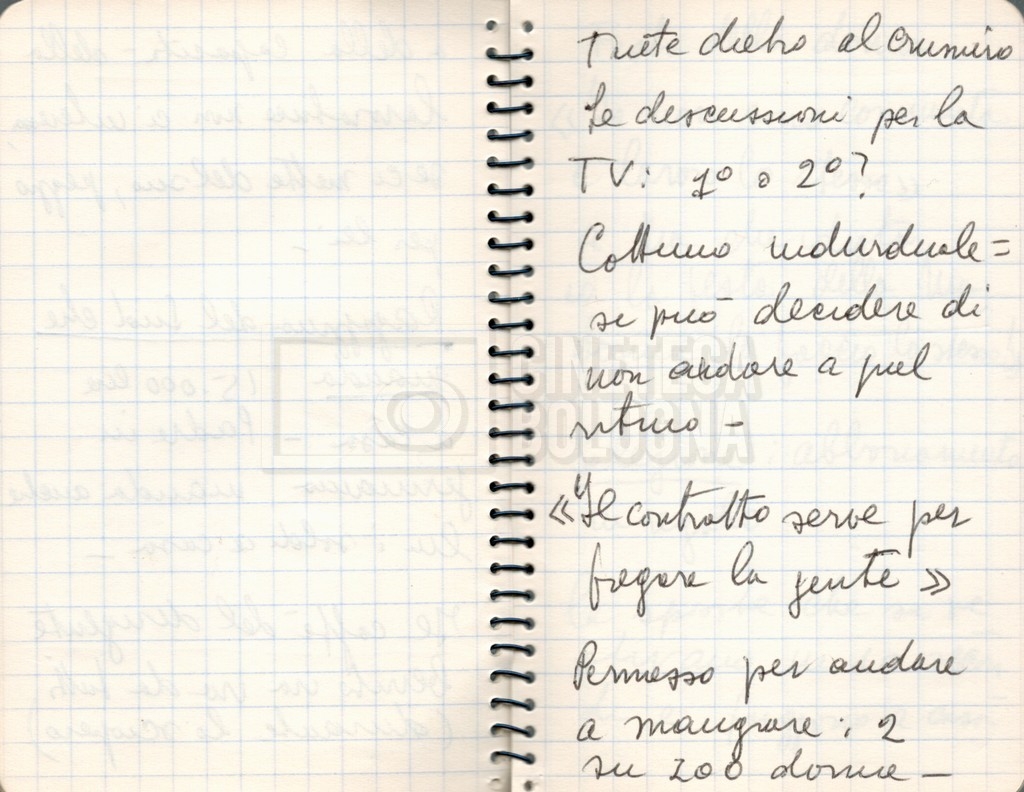 Tutte dietro al crumiro
Le discussioni per la
TV: 1º o 2º?
Cottimo individuale =
si può decidere di
non andare a quel
ritmo -
CINETECA
BOLOGNA
«Il contratto serve per
fregare la gente»
Permesso per andare
a mangiare: 2
su 200 donne -